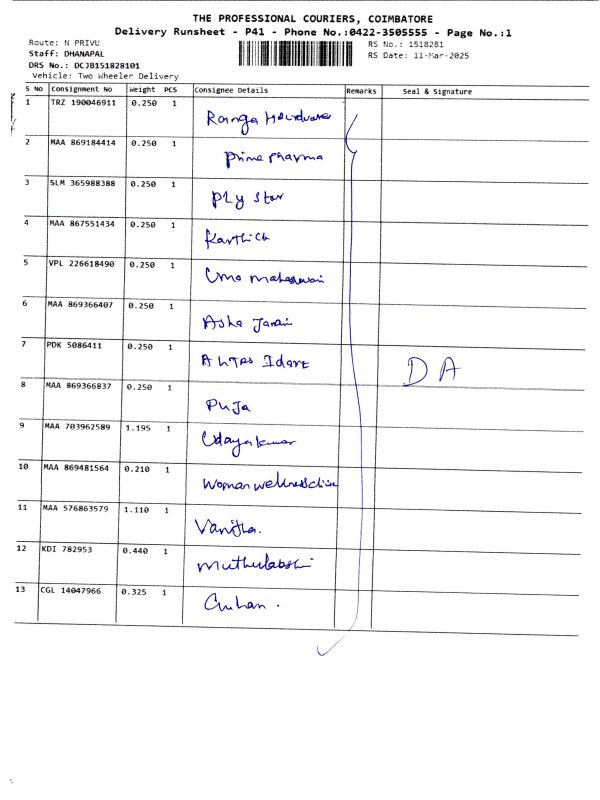 THE PROFESSIONAL COURIERS, COIMBATORE
Delivery Runsheet - P41 - Phone No.:0422-3505555 - Page No.:1
Route: N PRIVU
RS No.: 1518281
Staff: DHANAPAL
RS Date: 11-Mar-2025
DRS No.: DCJB151828101
Vehicle: Two Wheeler Delivery
S No Consignment No Weight PCS Consignee Details Remarks Seal & Signature
1 TRZ 190046911 0.250 1 Ranga Hardware
2 MAA 869184414 0.250 1 Prime Pharma
3 SLM 365988388 0.250 1 Ply Star
4 MAA 867551434 0.250 1 Karthick
5 VPL 226618490 0.250 1 Uma maheswari
6 MAA 869366407 0.250 1 Asha
7 PDK 5086411 0.250 1
D A
8 MAA 869366837 0.250 1 Puja
9 MAA 703962589 1.195 1 Udayakumar
10 MAA 869481564 0.210 1 Woman wellness
11 MAA 576863579 1.110 1 Vanitha.
12 KDI 782953 0.440 1 Muthulakshmi
13 CGL 14047966 0.325 1 Guhan.